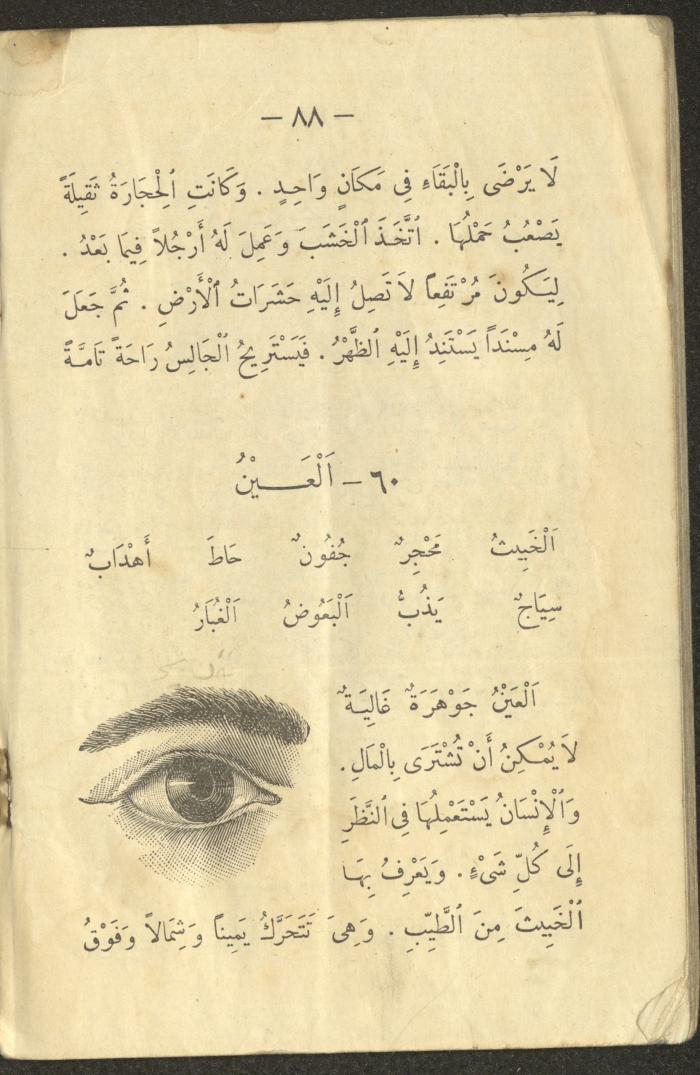 — ٨٨ —
لَا يَرْضَى بِالْبَقَاءِ فِى مَكَانٍ وَاحِدٍ . وَكَانَتِ ٱلْحِجَارَةُ ثَقِيلَةً
يَصْعُبُ حَمْلُهَا . اتَّخَذَ ٱلْخَشَبَ وَعَمِلَ لَهُ أَرْجُلاً فِيمَا بَعْدُ .
لِيَكُونَ مُرْتَفِعاً لَا تَصِلُ إِلَيْهِ حَشَرَاتُ ٱلْأَرْضِ . ثُمَّ جَعَلَ
لَهُ مِسْنَداً يَسْتَنِدُ إِلَيْهِ ٱلظَّهْرُ . فَيَسْتَرِيحُ ٱلْجَالِسُ رَاحَةً تَامَّةً
٦٠ — اَلْعَـــيْنُ
اَلْخَبِيثُ مَحْجِرٌ جُفُونٌ حَاطَ أَهْدَابٌ
سِيَاجٌ يَذُبُّ اَلْبَعُوضُ اَلْغُبَارُ
اَلْعَيْنُ جَوْهَرَةٌ غَالِيَةٌ
لَا يُمْكِنُ أَنْ تُشْتَرَى بِالْمَالِ .
وَٱلْإِنْسَانُ يَسْتَعْمِلُهَا فِى ٱلنَّظَرِ
إِلَى كُلِّ شَىْءٍ . وَيَعْرِفُ بِهَا
ٱلْخَبِيثَ مِنَ ٱلطَّيِّبِ . وَهِىَ تَتَحَرَّكُ يَمِيناً وَشِمَالاً وَفَوْقُ